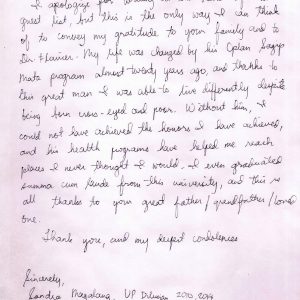 I apologize for
guest list, but this is the only way I can think
of to convey my gratitude to your family and to
Dr. Flavier. My life was changed by his Oplan Sagip
Mata program almost twenty years ago, and thanks to
this great man I was able to live differently despite
being born cross-eyed and poor. Without him, I
could not have achieved the honors I have achieved,
and his health programs have helped me reach
places I never thought I would. I even graduated
summa cum laude from this university, and this is
all thanks to your great father / grandfather / loved
one.
Thank you, and my deepest condolences
Sincerely,
Sandra UP Diliman 2010, 2014